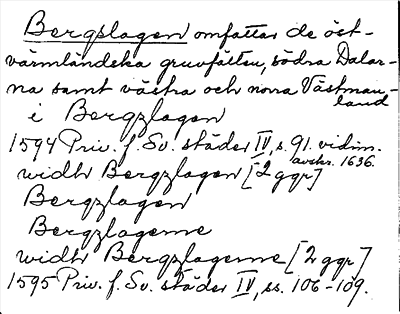 Bergslagen omfattar de öst-
värmländska gruvfälten, södra Dalar-
na samt västra och norra Västman-
land
i Bergzlagen
1594 Priv. f. Sv. städer IV, s. 91. vidim.
avskr. 1636.
widh Bergzlagen [2 ggr]
Bergzlagen
Bergzlagerne
widh Bergzlagerne [2 ggr]
1595 Priv. f. Sv. städer IV, ss. 106-109.